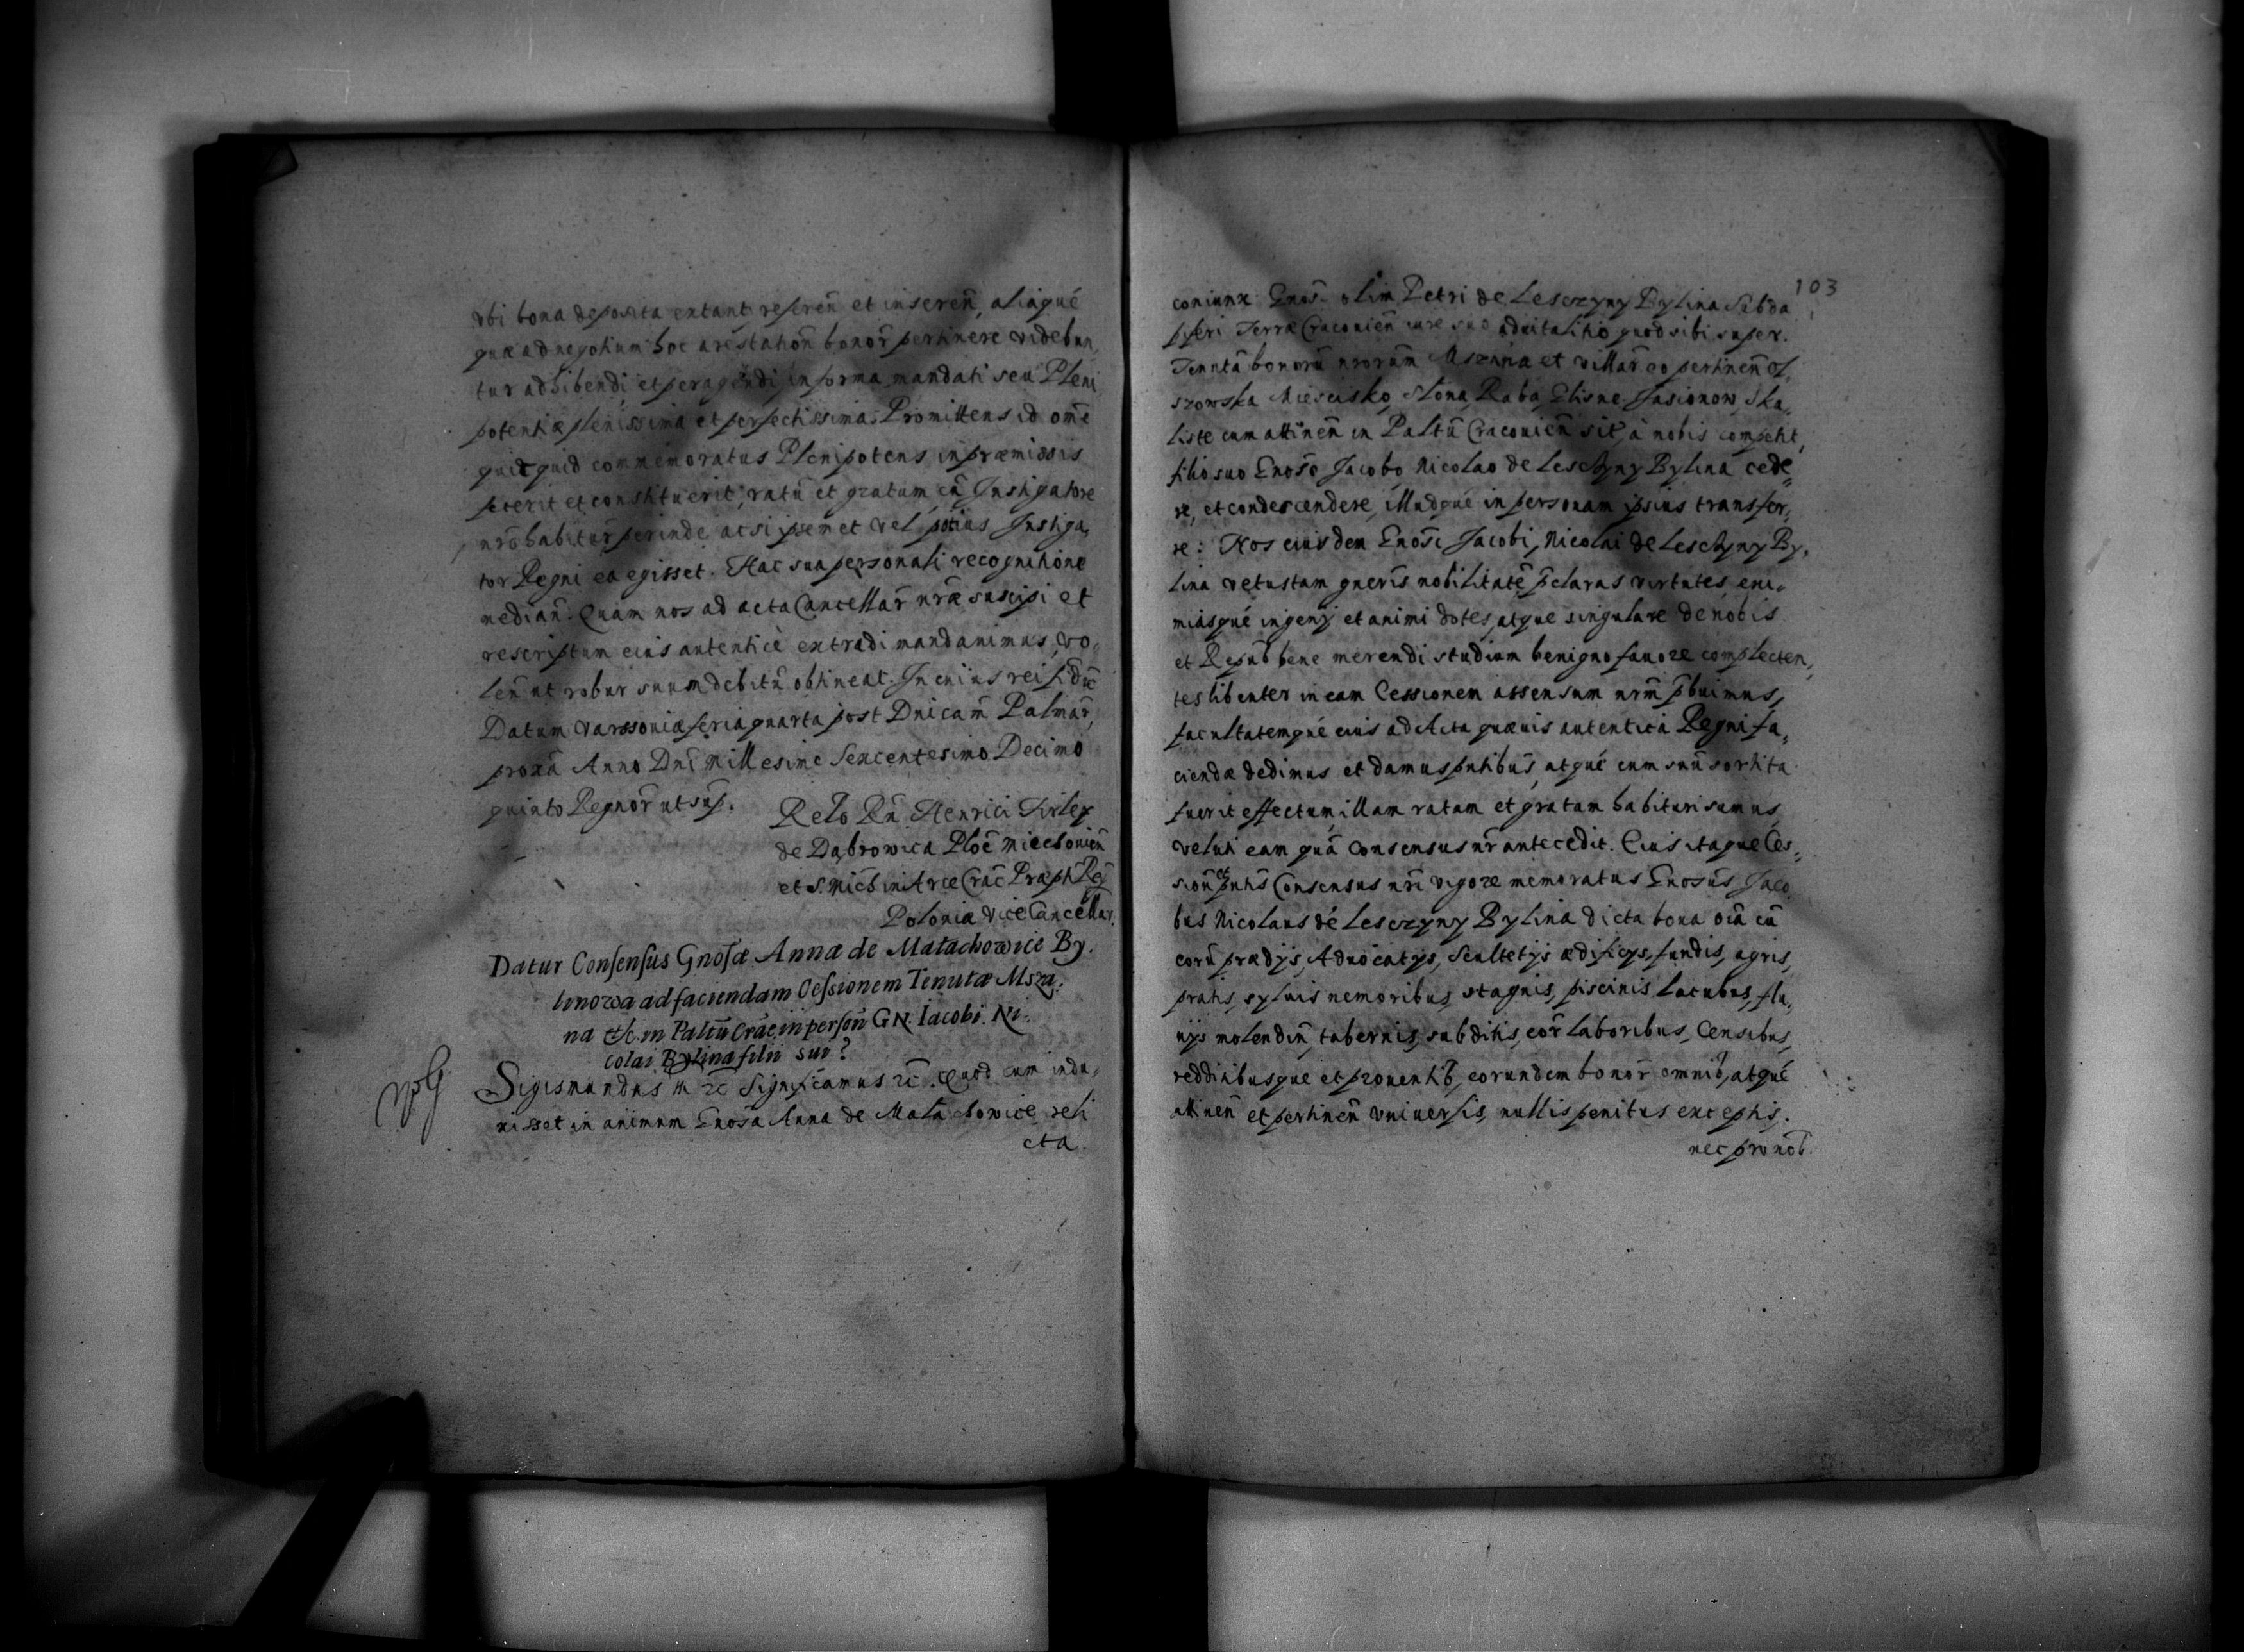 vbi bona deposita extant refereñ et insereñ, aliaqué
quæ ad negotium hoc arestatioñ bonor̃ pertinere videbun,
tur adhibendi, et peragendi, in forma mandati seu Pleni
potentiæ plenissima et perfectissima. Promittens id om̃e
quidquid commemoratus Plenipotens in præmissis
fecerit et constituerit, ratũ et gratum, cũ Instigatore
nr̃o habitur̃ perinde ac si ipsemet vel potius Instiga,
tor Regni ea egisset. Hac sua personali recognitione
mediañ. Quam nos ad acta Cancellar̃ nr̃æ suscipi et
rescriptum eius autenticè extradi mandauimus, vo,
leñ ut robur suum debitũ obtineat. In cuius rei fid̃ẽ
Datum Varssouiæ feria quarta post Dnicam̃ Palmar̃,
proxã Anno Dñi Millesimo Sexcentesimo Decimo
quinto Regnor̃ ut sup̃.
Relo Rñ Henrici Firley
de Dąbrowica Ploc̃ Miechouień
et S. Mich in Arce Crac̃ Præpti Reg̃
Poloniæ ViceCancellar.
Datur Consensus Gnõsæ Annæ de Małachowice By.
linowa ad faciendam Cessionem Tenutæ Mszą.
na &c. in Paltũ Crac̃ in persoñ GN. Iacobi. Ni.
colai Bylina filii sui?
Sigismundus III &c̃ Significamus &c̃. Quod cum indu,
xisset in animum Gnosa Anna de Małachowice reli
cta
103
coniunx Gnos̃. olim Petri de Lesczyny Bylina Subda
pferi Terræ Cracouieñ iure suo aduitalitio quod sibi super.
Tenutã bonorũ nrorum Mszana et villar̃ eo pertineñ Ol,
szowska Miescisko, Słona, Raba, Glisne Jasionow, Ska,
liste cum attineñ in Paltũ Cracouieñ sit, à nobis competit,
filio suo Gnoso Jacobo, Nicolao de Lesczyny Bylina cede,
re, et condescendere, illudqué in personam ipsius transfer,
re: Nos eiusdem Gnosi Jacobi, Nicolai de Lesczyny By,
lina vetustam gneris nobilitatẽ p̃claras virtutes, exi,
miasqué ingenij et animi dotes, atque singulare de nobis
et Repub̃ bene merendi studium benigno fauore complecten,
tes libenter in eam Cessionem assensum nrm̃ p̃buimus,
facultatemqué eius ad Acta quæuis autentica Regni fa,
ciendæ dedimus et damus pntibus̃, atqué cum suũ sortita
fuerit effectum, illam ratam et gratam habituri sumus,
veluti eam quã Consensus nr̃ antecedit. Eius itaque Ces,
sioñ et pntis̃ Consensus nr̃i vigore memoratus Gnosus̃ Jaco
bus Nicolaus dé Lesczyny Bylina dicta bona oĩa cũ
eorũ prædijs, Aduocatijs, Scultetijs ædificijs, fundis, agris,
pratis, syluis nemoribus, stagnis, piscinis, lacubus, flu,
uijs molendiñ, tabernis, subditis, eor̃ laboribus, Censibus,
redditibusque et prouentib̃, eorundem bonor̃ omnib̃, atqué
attineñ et pertineñ vniuersis, nullis penitus exceptis.
nec pro nob̃.